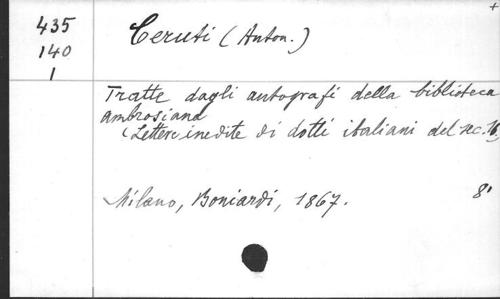 +
435
140
1
Ceruti (Anton.)
Tratte dagli autografi della biblioteca
ambrosiana
(Lettere inedite di dotti italiani del sec. 16)
Milano, Boniardi, 1867. 8°